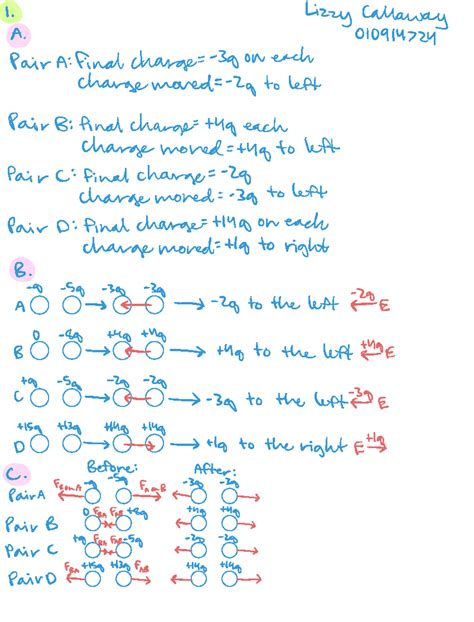 1.
Lizzy Callaway
010914724
A.
Pair A: Final charge = -3q on each
charge moved = -2q to left
Pair B: final charge = +4q each
charge moved = +4q to left
Pair C: final charge = -2q
charge moved = -3q to left
Pair D: final charge = +14q on each
charge moved = +1q to right
B.
-q -5q -3q -3q
A → → -2q to the left -2q E
0 +4q +4q
B → → +4q to the left +4q E
+q -5q -2q -2q
C → → -3q to the left -3q E
+15q +13q +14q +14q
D → → +1q to the right E +1q
C. Before: After:
Pair A -q -5q -3q -3q
Pair B 0 FBA FAB +8q +4q +4q
Pair C +q FBA FAB -5q -2q -2q
Pair D FBA +15q +13q FAB +14q +14q